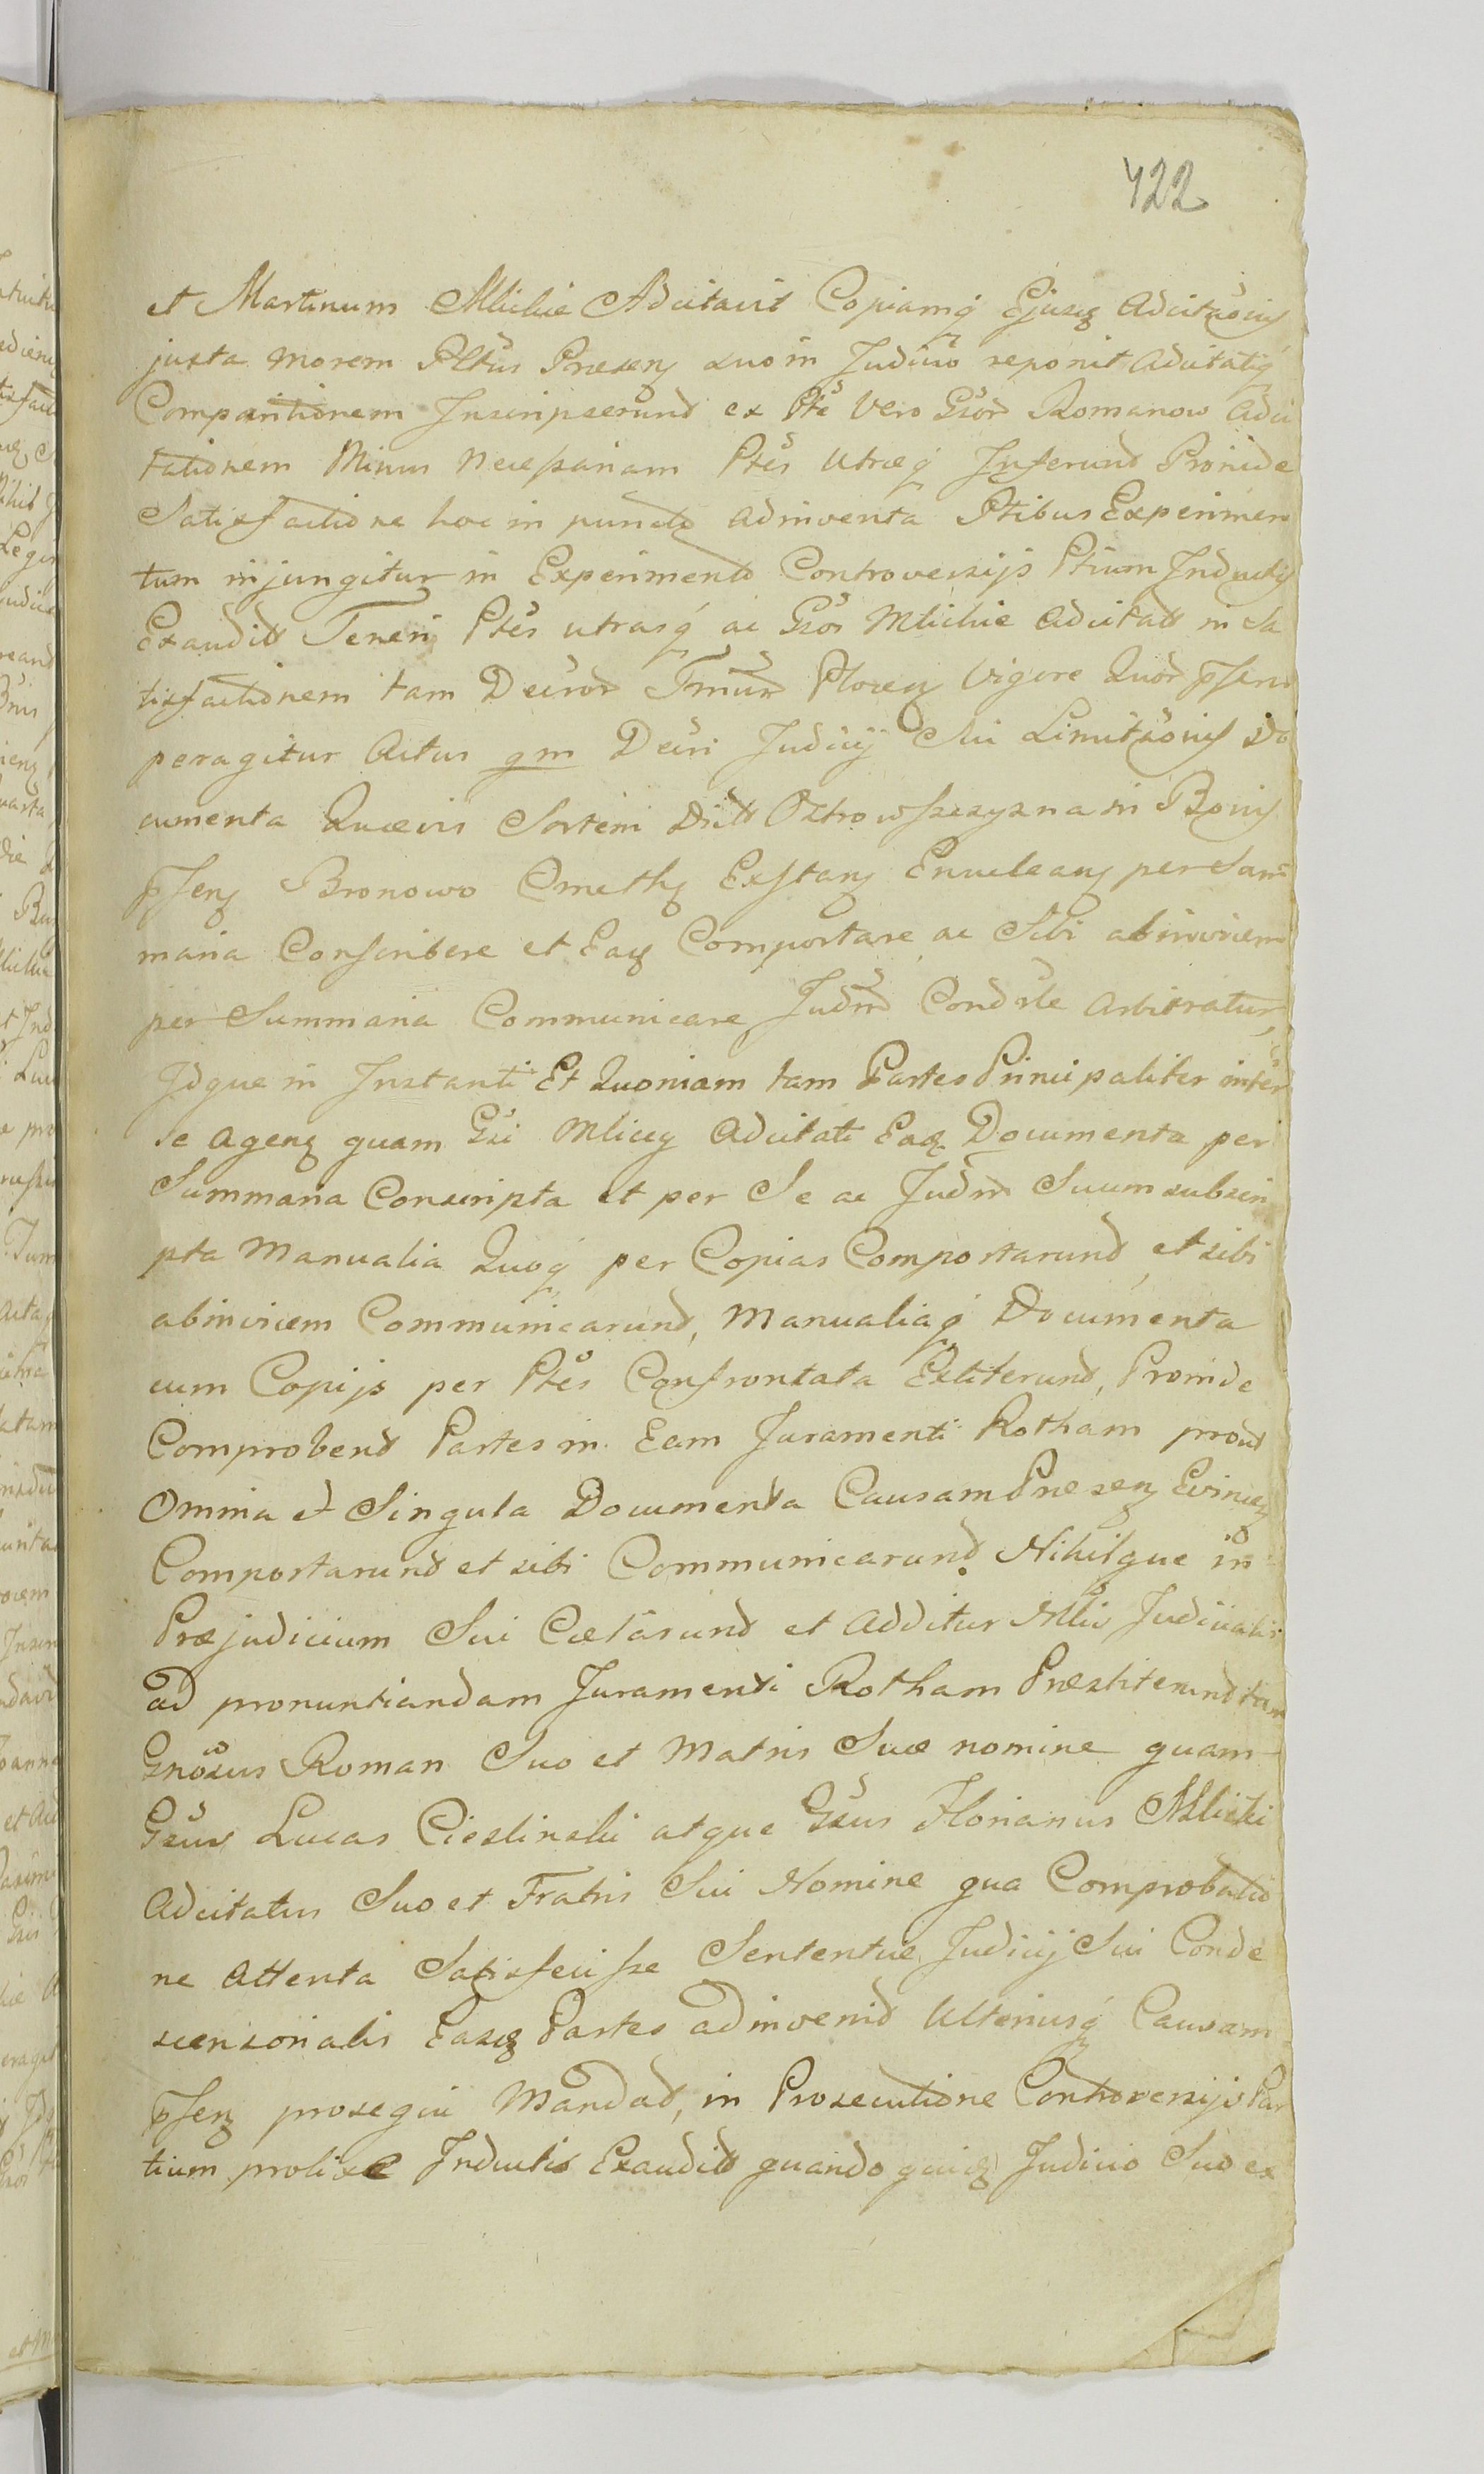 422
et Martinum Mlickie Adcitavit Copiamq Ejusq Adcitãonis
juxta morem Pltũs Praesenς suo in Judicio reponit Adcitatiq
Comparitionem Inscripserund ex Pte Vero Gsõr Romanow Adci
tationem Minus Necessariam Ptes Utraeq Inferund Proinde
Satisfactione hoc in puncto adinventa Ptibus Experimen
tum injungitur in Experimento Controversijs Ptium Inductis
Exauditt Teneri Ptes utrasq ac Gsos Mlickie Adcitatt in Sa
tisfactionem tam Decror Tmũr Plocen Vigore Quor pñsens
peragitur Actus qm Decri Judicij Sui Limitãonis Do
cumenta Quaevis Sortem Dictt Ostrowszczyzna in Bonis
pñsen Bronowo Cmethϙ Exstanς Enucleanς per Sum
maria Conscribere et Eaq Comportare ac Sibi abinvicem
per Summaria Communicare Judm Condsle Arbitratur,
Idque in Instanti Et Quoniam tam Partes Principaliter inter
se Agenς quam Gsi Mliccy Adcitati Eaq Documenta per
Summaria Conscripta et per Se ac Judm Suum subscri
pta Manualia Quoq per Copias Comportarund, et sibi
abinvicem Communicarund, Manualiaq Documenta
cum Copijs per Ptes Confrontata Extiterund, Proinde
Comprobend Partes in Eam Juramenti Rotham proud
Omnia et Singula Documenta Causam Praesenς Evincenς
Comportarund et sibi Communicarund Nihilque in
Praejudicium Sui Caelarund et Additur Mlis Judicialis
ad pronuntiandam Juramenti Rotham Praestiterund tam
Gnosus Roman Suo et Matris Suae nomine quam
Gsus Lucas Cieslinski atque Gsus Florianus Mlicki
Adcitatus Suo et Fratris Sui Nomine qua Comprobatio
ne Attenta Satisfecisse Sententiae Judicij Sui Conde
scensorialis Easq Partes adinvenid Ulteriusq Causam
pñsen prosequi Mandad, in Prosecutione Controversijs Par
tium prolixe Inductis Exauditt quandoquidq Judicio Suo ex